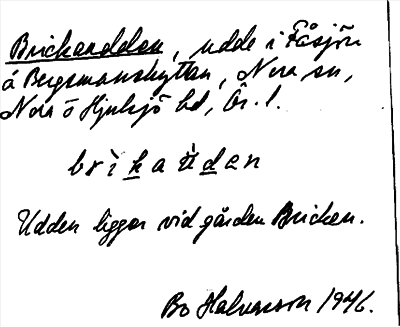 Brickandden, udde i Fåsjön
å Bergsmanshyttan, Nora sn,
Nora o Hjulsjö bd, Ör. l.
brìkaùden
Udden ligger vid gården Bricken.
Bo Halvarsson 1946.